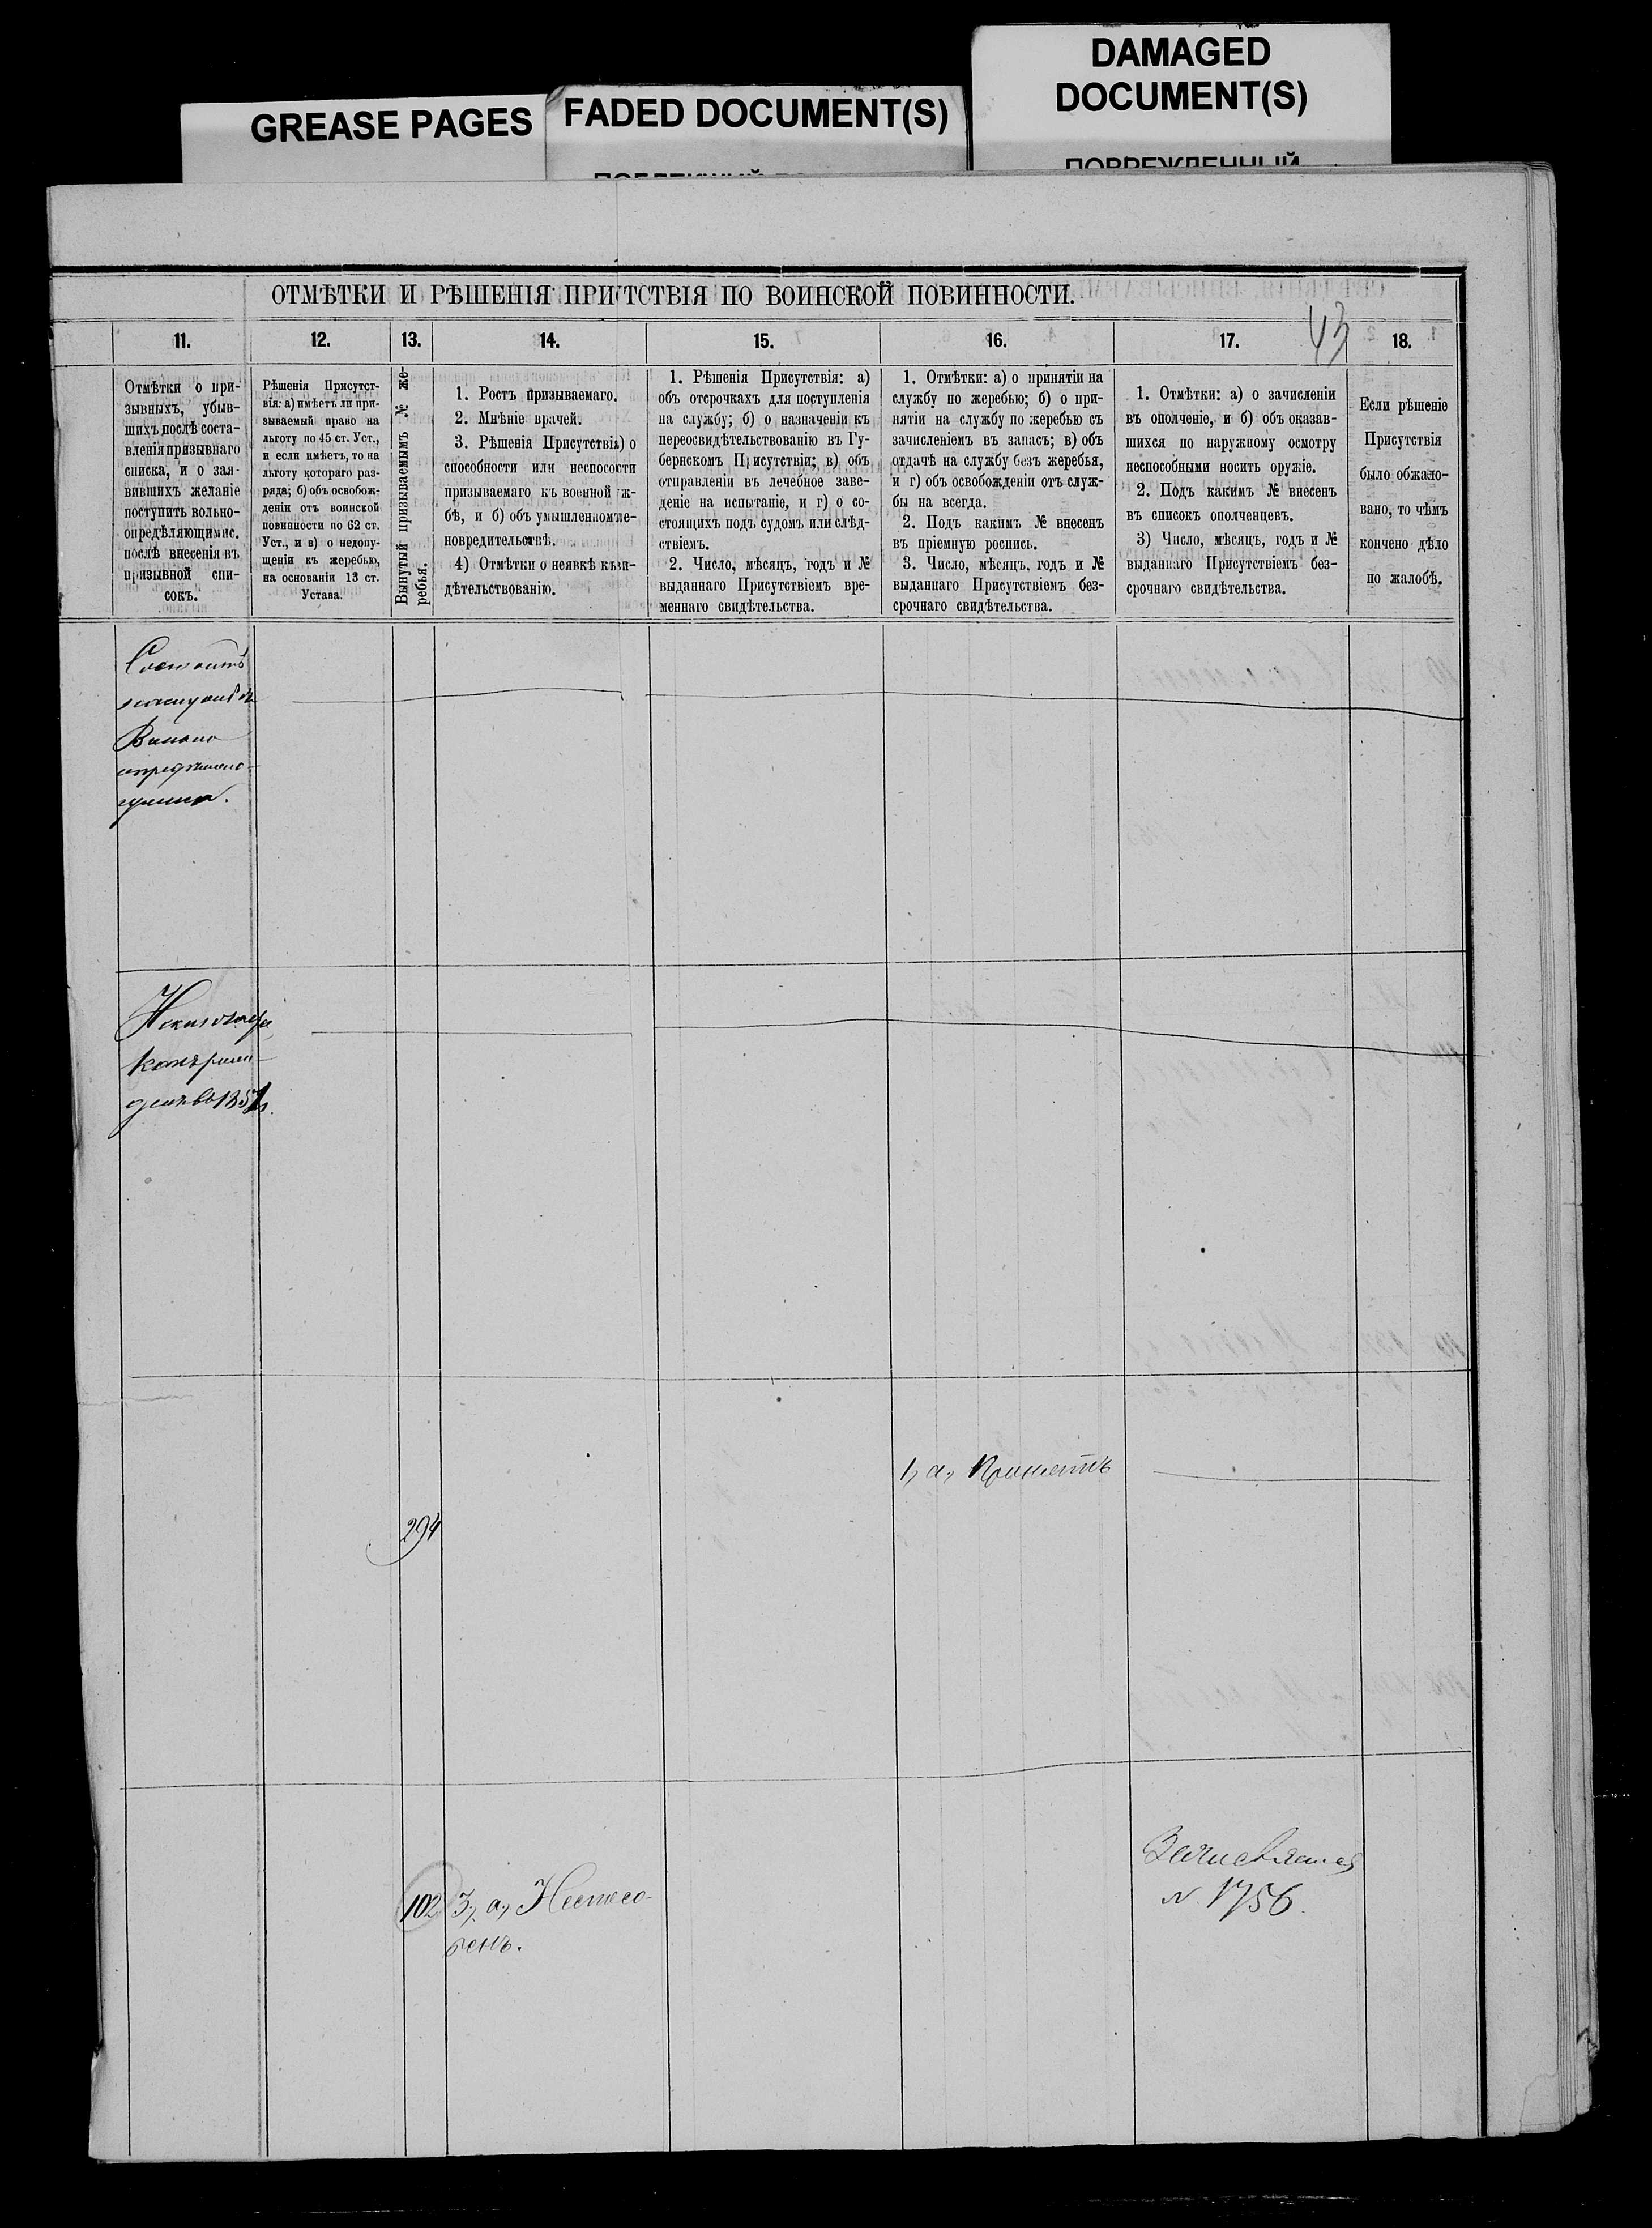 GREASE PAGES
FADED DOCUMENT(S)
DAMAGED
DOCUMENT(S)
ПОВРЕЖДЕННЫЙ
ОТМѢТКИ И РѢШЕНІЯ ПРИ ТСТВІЯ ПО ВОИНСКОЙ ПОВИННОСТИ.
43
11.
12.
13.
14.
15.
16.
17.
18.
Отмѣтки о при-
зывныхъ, убыв-
шихъ послѣ соста-
вленія призывнаго
списка, и о зая-
вившихъ желаніе
поступить вольно-
опредѣляющимис.
послѣ внесенія въ
призывной спи-
сокъ.
Рѣшенія Присутст-
вія: а) имѣетъ ли при-
зываемый право на
льготу по 45 ст. Уст.,
и если имѣетъ, то на
льготу котораго раз-
ряда; б) объ освобож-
деніи отъ воинской
повинности по 62 ст.
Уст., и в) о недопу-
щеніи къ жеребью,
на основаніи 13 ст.
Устава.
Вынутый призываемымъ № же-
ребья.
1. Ростъ призываемаго.
2. Мнѣніе врачей.
3. Рѣшенія Присутствіа) о
способности или неспособости
призываемаго къ военной ж-
бѣ, и б) объ умышленномне-
новредительствѣ.
4) Отмѣтки о неявкѣ къви-
дѣтельствованію.
1. Рѣшенія Присутствія: а)
объ отсрочкахъ для поступленія
на службу; б) о назначеніи къ
переосвидѣтельствованію въ Гу-
бернскомъ Присутствіи; в) объ
отправленіи въ лечебное заве-
деніе на испытаніе, и г) о со-
стоящихъ подъ судомъ или слѣд-
ствіемъ.
2. Число, мѣсяцъ, годъ и №
выданнаго Присутствіемъ вре-
меннаго свидѣтельства.
1. Отмѣтки: а) о принятіи на
службу по жеребью; б) о при-
нятіи на службу по жеребью съ
зачисленіемъ въ запасъ; в) объ
отдачѣ на службу безъ жеребья,
и г) объ освобожденіи отъ служ-
бы на всегда.
2. Подъ какимъ № внесенъ
въ пріемную роспись.
3. Число, мѣсяцъ, годъ и №
выданнаго Присутствіемъ без-
срочнаго свидѣтельства.
1. Отмѣтки: а) о зачисленіи
въ ополченіе, и б) объ оказав-
шихся по наружному осмотру
неспособными носить оружіе.
2. Подъ какимъ № внесенъ
въ списокъ ополченцевъ.
3) Число, мѣсяцъ, годъ и №
выданнаго Присутствіемъ без-
срочнаго свидѣтельства.
Если рѣшеніе
Присутствія
было обжало-
вано, то чѣмъ
кончено дѣло
по жалобѣ.
Состоитъ
1, а, Принятъ
294
102
3, а, Неспосо-
бенъ.
Зачисляется
N 1756.